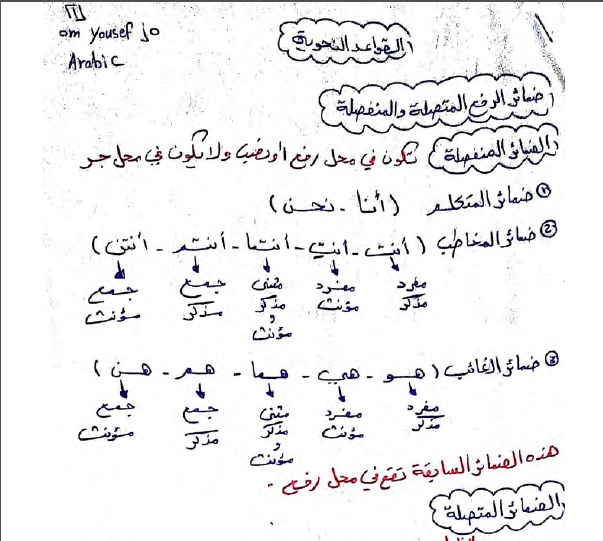 om yousef jo
Arabic
القواعد النحوية
ضمائر الرفع المتصلة والمنفصلة
الضمائر المنفصلة تكون في محل رفع أو نصب ولا تكون في محل جر
① ضمائر المتكلم (أنا - نحن)
② ضمائر المخاطب (أنتَ - أنتِ - أنتما - أنتم - أنتن)
مفرد مفرد مثنى جمع جمع
مذكر مؤنث مذكر مذكر مؤنث
و
مؤنث
③ ضمائر الغائب (هو - هي - هما - هم - هن)
مفرد مفرد مثنى جمع جمع
مذكر مؤنث مذكر مذكر مؤنث
و
مؤنث
هذه الضمائر السابقة تقع في محل رفع .
الضمائر المتصلة